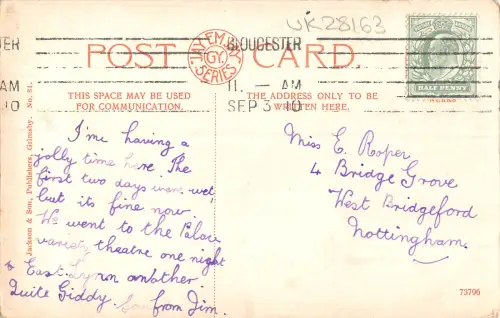 UK28163
GLOUCESTER
11 - AM
SEP 3 10
AM
10
POST CARD.
JAY EM JAY
GY.
SERIES
HALF PENNY
THIS SPACE MAY BE USED
FOR COMMUNICATION.
THE ADDRESS ONLY TO BE
WRITTEN HERE.
Jackson & Son, Publishers, Grimsby. No. 51.
I'me having a
jolly time here. The
first two days were wet
but its fine now.
We went to the Palace
variety theatre one night
& East Lynn another.
Quite Giddy. from Jim.
Miss E. Roper
4 Bridge Grove
West Bridgeford
Nottingham.
73796